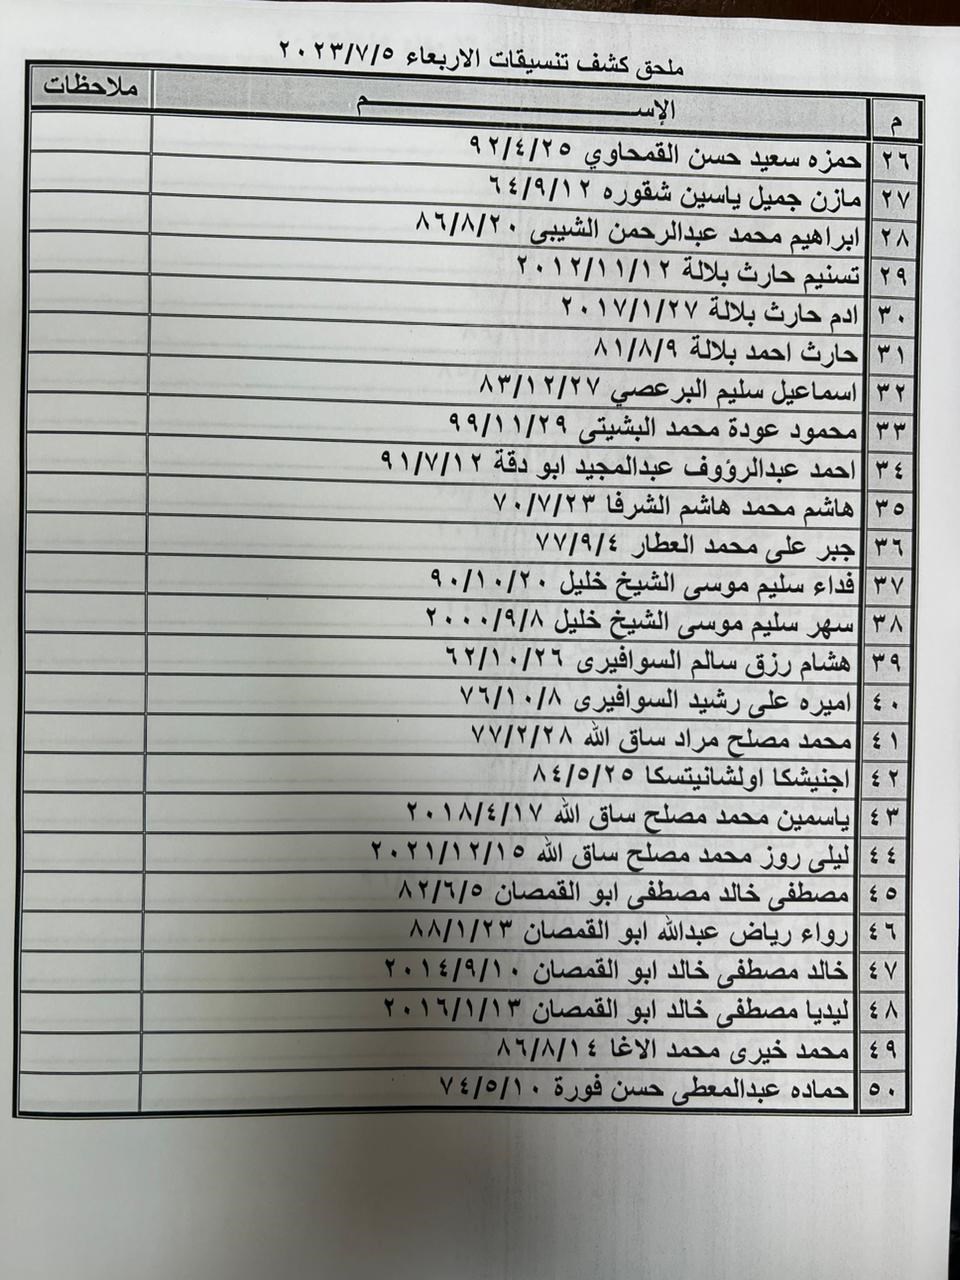 ملحق كشف تنسيقات الاربعاء ٢٠٢٣/٧/٥
م الإســـــــــــــــــم ملاحظات
٢٦ حمزه سعيد حسن القمحاوي ٩٢/٤/٢٥
٢٧ مازن جميل ياسين شقوره ٦٤/٩/١٢
٢٨ ابراهيم محمد عبدالرحمن الشيبى ٨٦/٨/٢٠
٢٩ تسنيم حارث بلالة ٢٠١٢/١١/١٢
٣٠ ادم حارث بلالة ٢٠١٧/١/٢٧
٣١ حارث احمد بلالة ٨١/٨/٩
٣٢ اسماعيل سليم البرعصي ٨٣/١٢/٢٧
٣٣ محمود عودة محمد البشيتى ٩٩/١١/٢٩
٣٤ احمد عبدالرؤوف عبدالمجيد ابو دقة ٩١/٧/١٢
٣٥ هاشم محمد هاشم الشرفا ٧٠/٧/٢٣
٣٦ جبر على محمد العطار ٧٧/٩/٤
٣٧ فداء سليم موسى الشيخ خليل ٩٠/١٠/٢٠
٣٨ سهر سليم موسى الشيخ خليل ٢٠٠٠/٩/٨
٣٩ هشام رزق سالم السوافيرى ٦٢/١٠/٢٦
٤٠ اميره على رشيد السوافيرى ٧٦/١٠/٨
٤١ محمد مصلح مراد ساق الله ٧٧/٢/٢٨
٤٢ اجنيشكا اولشانيتسكا ٨٤/٥/٢٥
٤٣ ياسمين محمد مصلح ساق الله ٢٠١٨/٤/١٧
٤٤ ليلى روز محمد مصلح ساق الله ٢٠٢١/١٢/١٥
٤٥ مصطفى خالد مصطفى ابو القمصان ٨٢/٦/٥
٤٦ رواء رياض عبدالله ابو القمصان ٨٨/١/٢٣
٤٧ خالد مصطفى خالد ابو القمصان ٢٠١٤/٩/١٠
٤٨ ليديا مصطفى خالد ابو القمصان ٢٠١٦/١/١٣
٤٩ محمد خيرى محمد الاغا ٨٦/٨/١٤
٥٠ حماده عبدالمعطى حسن فورة ٧٤/٥/١٠